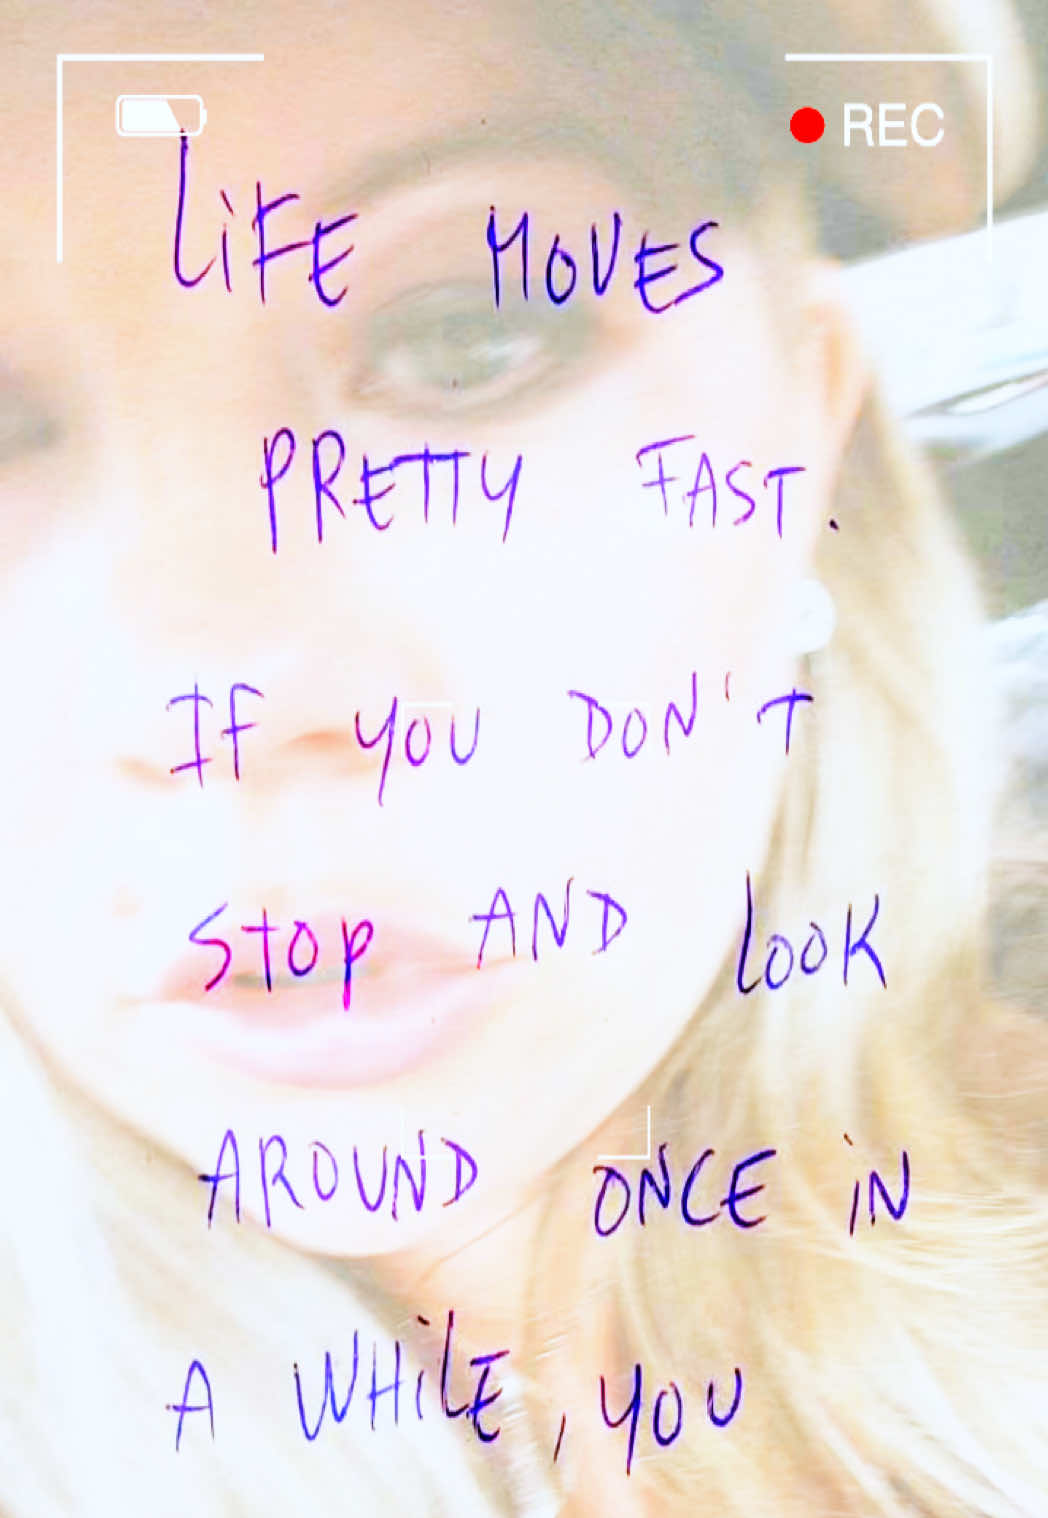 REC
LiFE MOVES
PRETTY FAST.
IF YOU DON'T
STOP AND LOOK
AROUND ONCE IN
A WHiLE, YOU